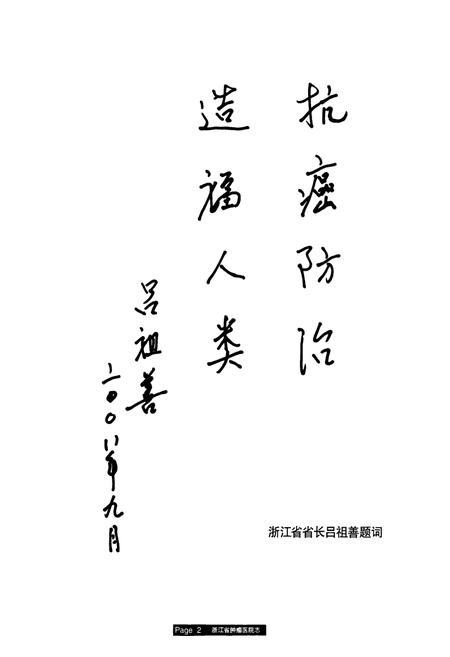 抗癌防治
造福人类
吕祖善
二〇〇八年九月
浙江省省长吕祖善题词
Page 2 浙江省肿瘤医院志